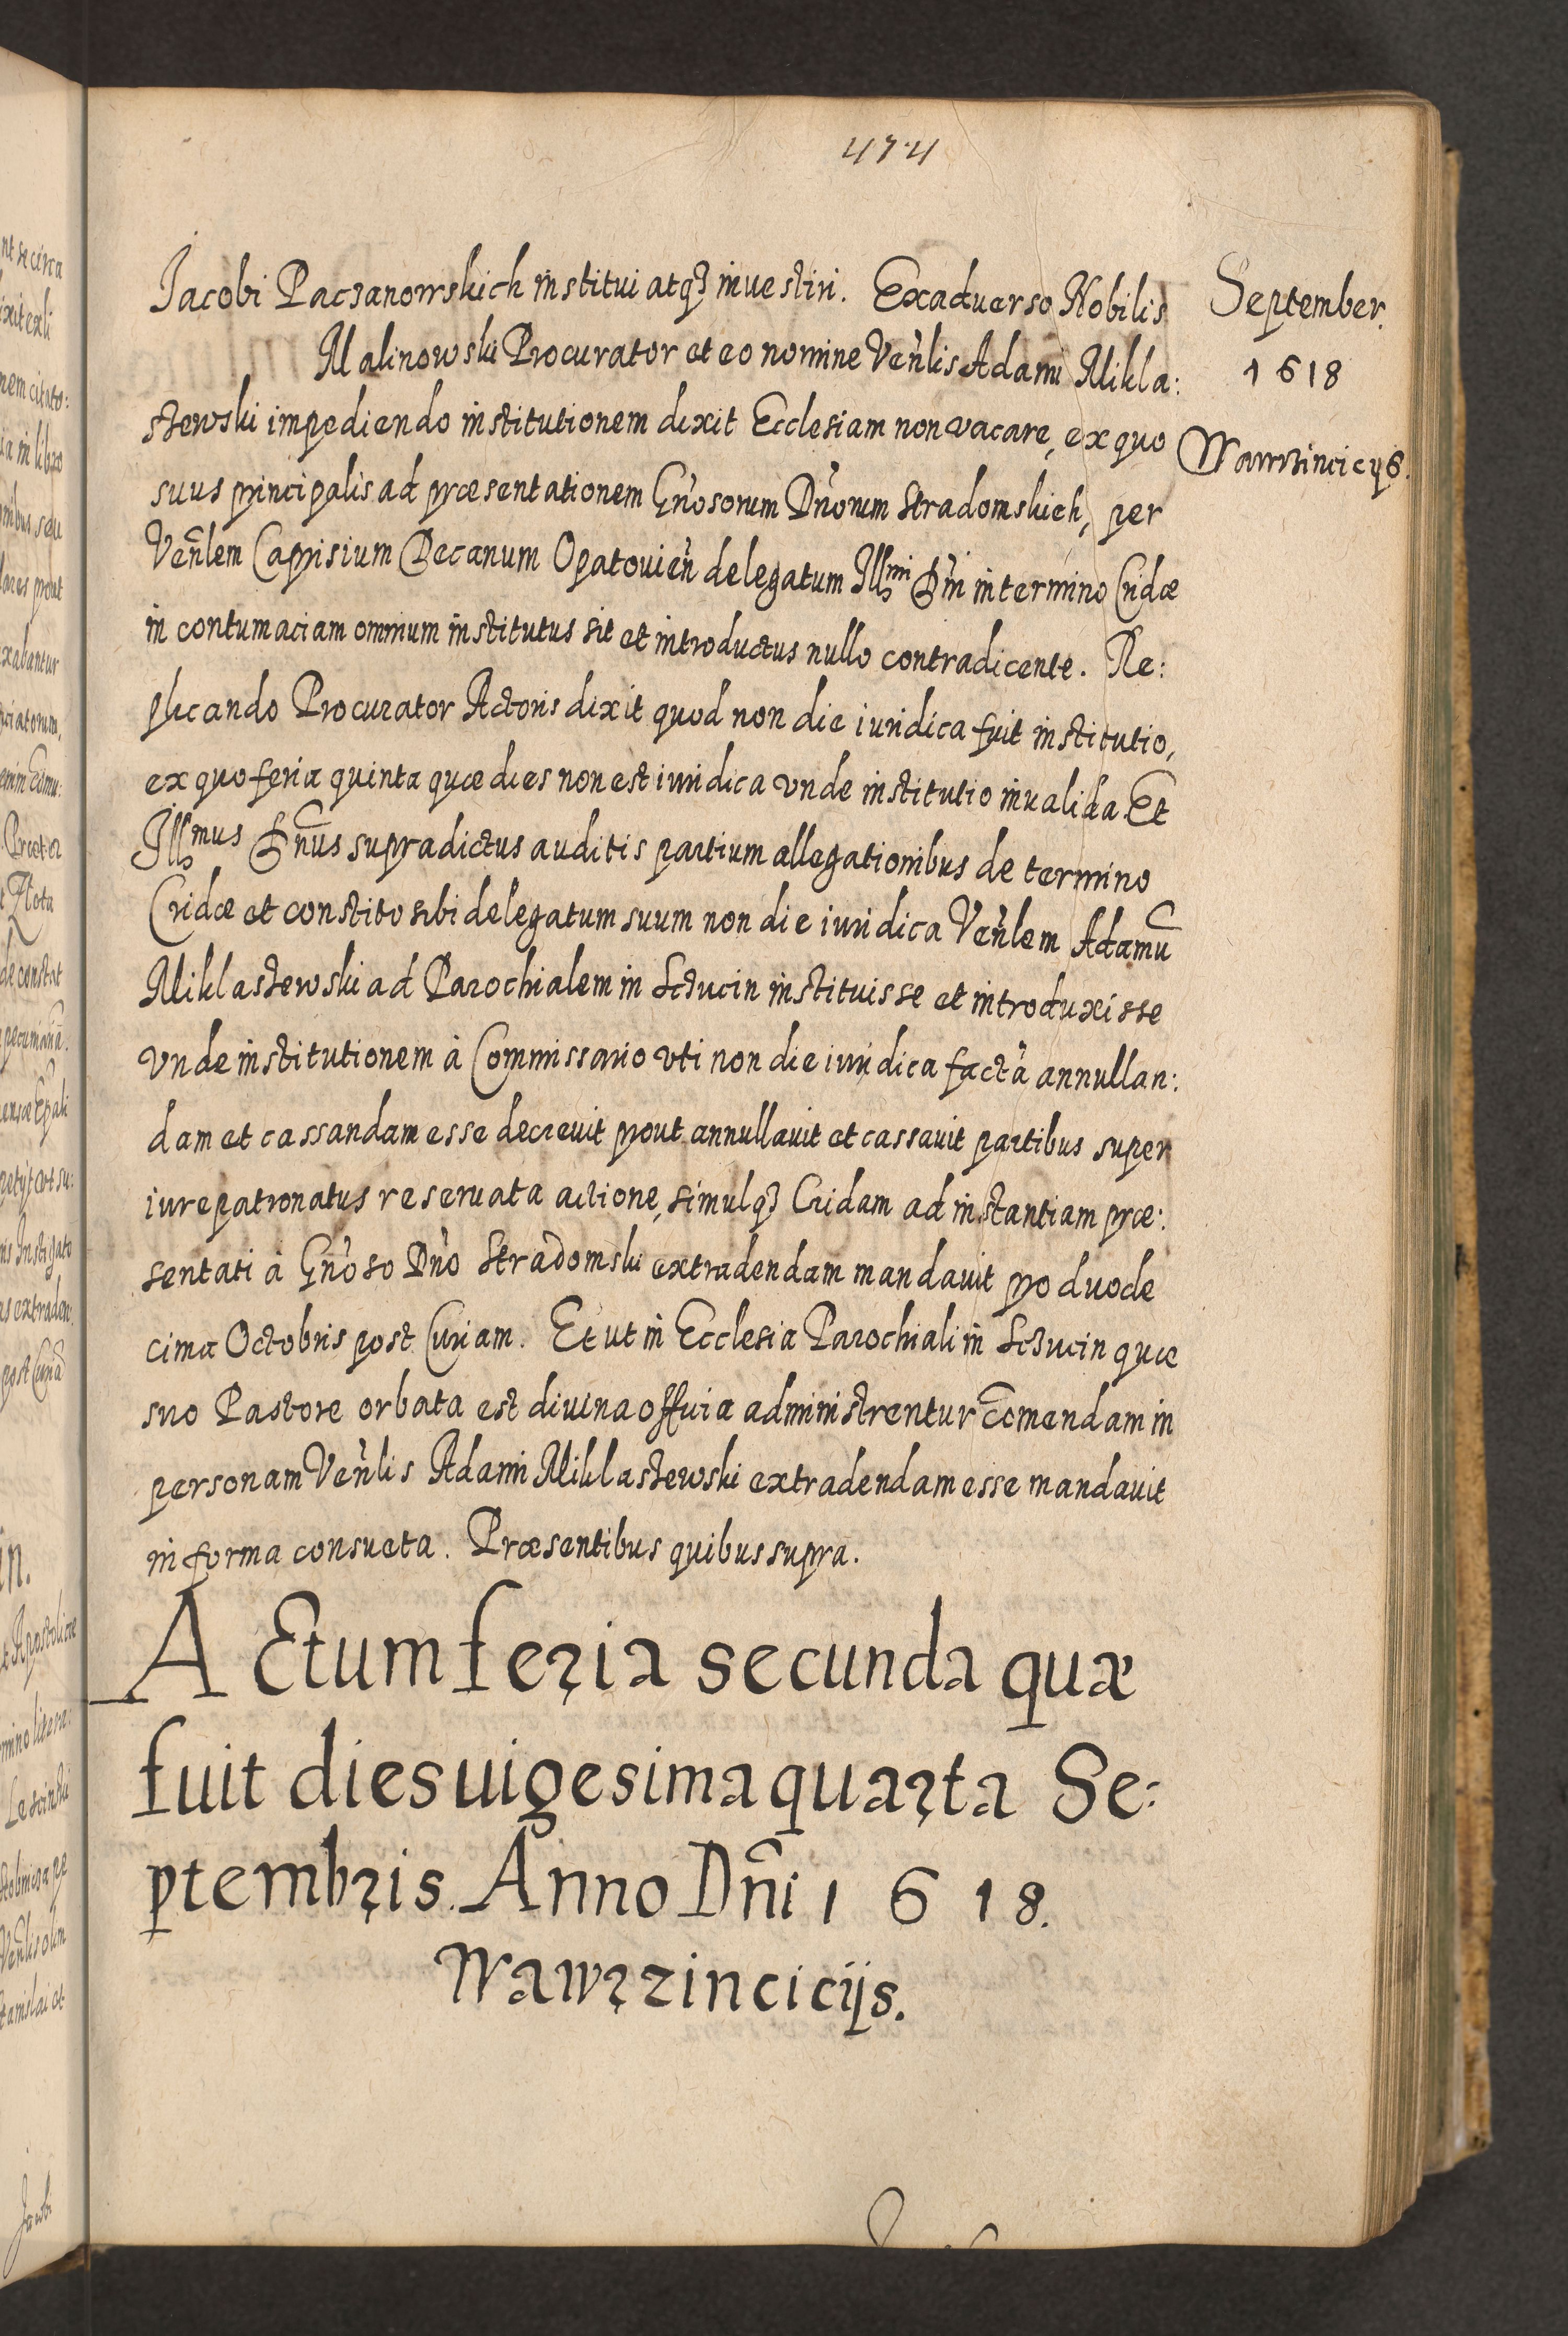 474
Jacobi Paczanowskich institui atq3 inuestiri. Exaduerso Nobilis
Malinowski Procurator et eo nomine Ven̄lis Adami Mikla:
szewski impediendo institutionem dixit Ecclesiam non vacare, ex quo
suus principalis ad præsentationem Gn̄osorum Dn̄orum Stradomskich, per
Ven̄lem Caprisium Decanum Opatouien̄ delegatum Illmi Dn̄i in termino Cridæ
in contumaciam omnium institutus sit et introductus nullo contradicente. Re:
plicando Procurator Actoris dixit quod non die iuridica fuit institutio,
ex quo feria quinta quæ dies non est iuridica vnde institutio inualida. Et
Illmus Dn̄us supradictus auditis partium allegationibus de termino
Cridæ et constito sibi delegatum suum non die iuridica Ven̄lem Adamū
Miklaszewski ad Parochialem in Sczucin instituisse et introduxisse
vnde institutionem à Commissario vti non die iuridica factā annullan:
dam et cassandam esse decreuit prout annullauit et cassauit partibus super
iurepatronatus reseruata actione, simulq3 Cridam ad instantiam præ:
sentati à Gn̄oso Dn̄o Stradomski extradendam mandauit pro duode
cima Octobris post Curiam. Et ut in Ecclesia Parochiali in Sczucin quæ
suo Pastore orbata est diuina officia administrentur com̄endam in
personam Ven̄lis Adami Miklaszewski extradendam esse mandauit
in forma consueta. Præsentibus quibus supra.
ACtum feria secunda quæ
fuit dies uigesima quarta Se:
ptembris. Anno Dn̄i 1618.
Wawrzincicijs.
September.
1618
Wawrzincicijs.